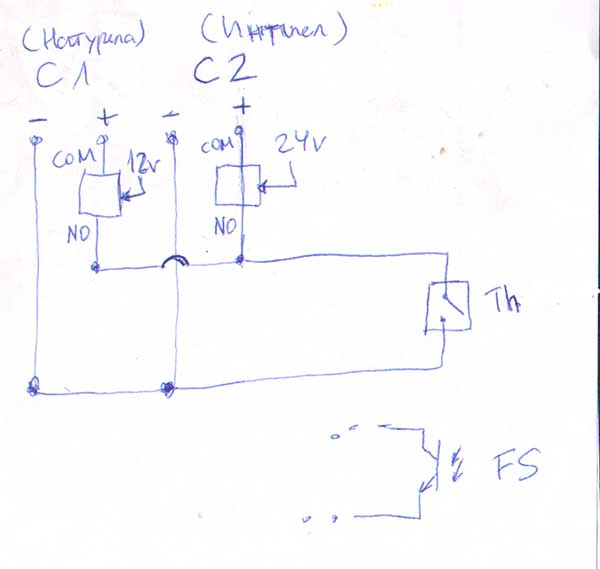 (Натурела) (Интиел)
C1 C2
- + - +
COM 12v COM 24v
NO NO
Th
FS